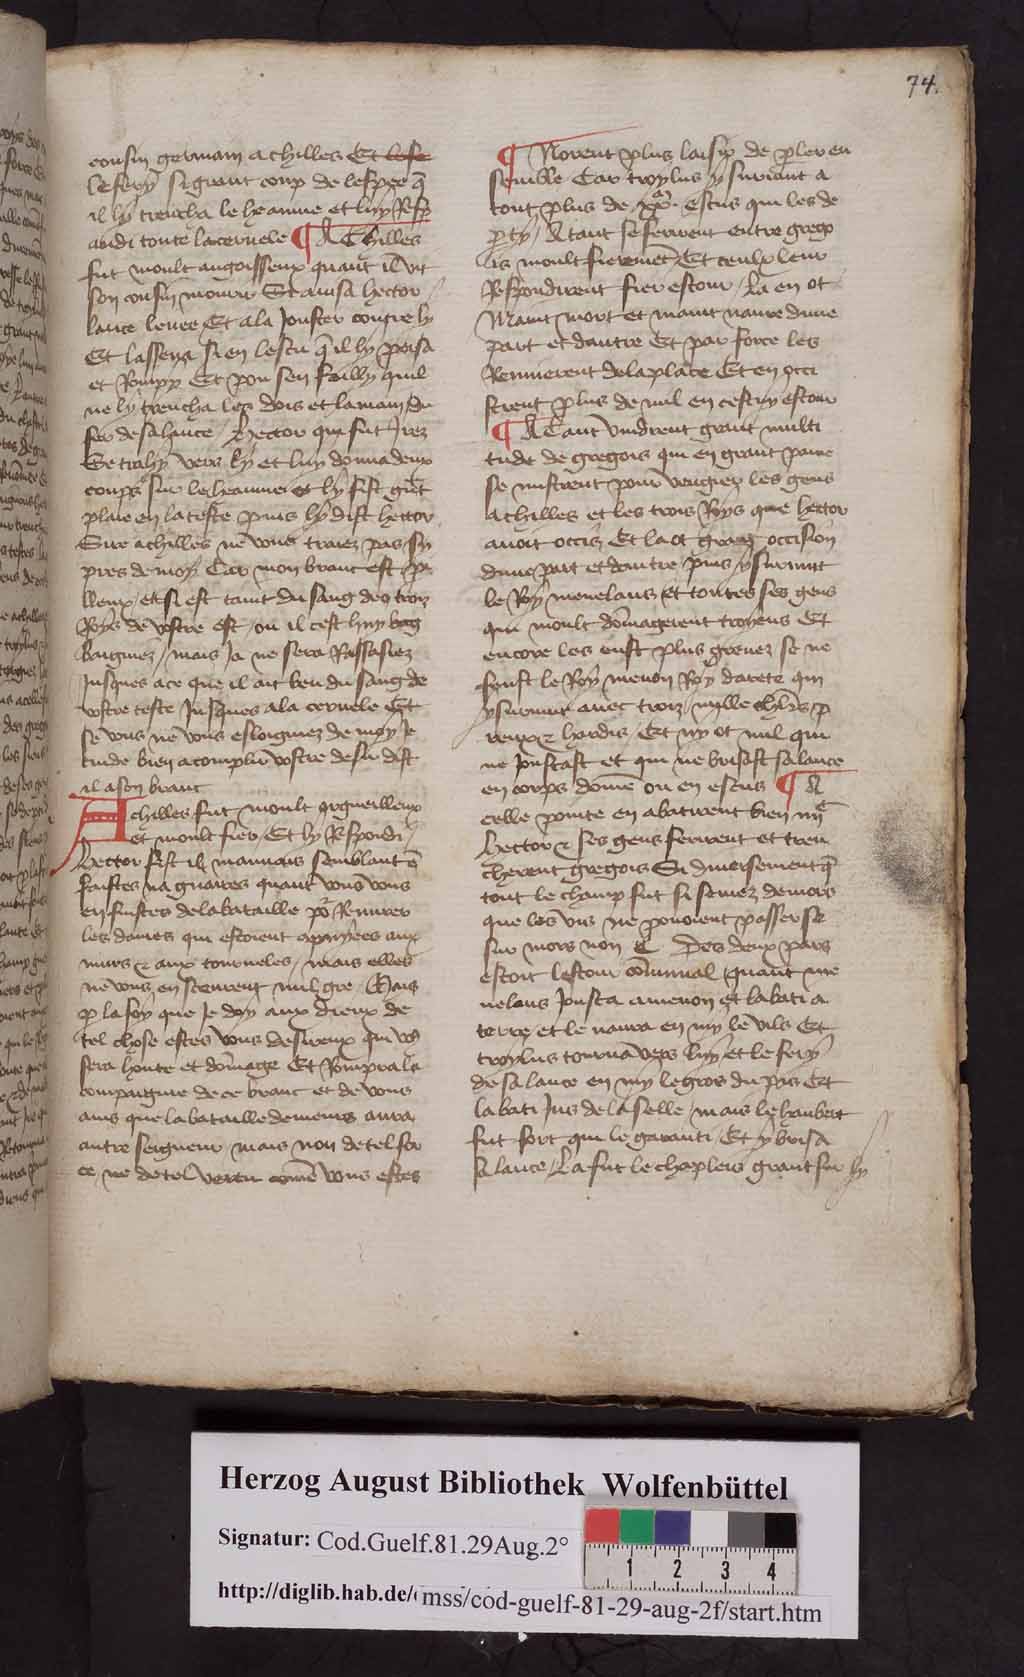 74.
cousin germain achilles Et lefe
le fery si grant coup de lespee q̄
il ly trencha le heaume et luy Resp
andi toute la cervele ¶ AChilles
fut moult angoisseux quant il vit
son cousin mourir Et avisa hector
lance levee Et ala Jouster contre ly
Et lassena si en lescu q̄ il ly persa
et Rompy Et pou sen failly quil
ne ly trencha les dois et la main du
fer de sa lance / Hector qui fut Irez
Se trahy vers ly et luy donna deux
coups sur le heaume et ly fist gr̄t
plaie en la teste puis ly dist hector
Sire achilles ne vous traiez pas sy
pres de moy Car mon branc est pe
lleux / et si est taint du sang de troiz
Roys de vostre ost / ou il cest huy
baigniez / mais Ja ne sera Rassasiez
Jusques a ce que il ait beu du sang de
vostre teste Jusques a la cervele Et
se vous ne vous esloigniez de moy Je
cuide bien acomplir vostre desir dist
il a son branc
Achilles fut moult orgueilleux
et moult fier / Et ly Respondi /
hector fist il mauvais semblant ē
faistes na guaires quant vous vous
en fuistes de la bataille po Remirer
les dames qui estoient apuyees aux
murs et aux tourneles / mais elles
ne vous en sceurent nul gre / Mais
p la foy que Je doy aux dieux de
tel chose estes vous desireux qui vo9
fera honte et dōmage Et Rompra la
compaignie de ce branc et de vous
ains que la bataille demeure aura
autre seigneur mais non de tel for
ce ne de tel vertu com̄e vous estes
¶ Norent plus laisir de pler en
semble Car troylus y survint a
tout plus de escus qui les de
pty / Atant se ferirent entre grego
is moult fierem̄et Et ceulx leur
Respondirent fier estour / La en ot
Maint mort et maint navre dune
part et dautre Et par force les
Remuerent de la place Et en occi
strent plus de mil en cestuy estour
¶ ATant vindrent grant multi
tude de gregois qui en grant paine
se mistrent pour vengier les gens
achilles et les trois Roys que hector
avoit occis / Et la ot grant occision
dune part et dautre puis y survint
le Roy menelaus et toutes ses gens
qui moult dōmagerent troyens Et
encore les eust plus grevez se ne
feust le Roy menon Roy darete qui
y survint avec troiz mille chl̄rs p
reux et hardis / Et ny ot nul qui
ne Joustast et qui ne brisast sa lance
en corps dōme ou en escus ¶ A
celle pointe en abatirent bien
Hector et ses gens ferirent et tren
cherent gregois Si diversement q̄
tout le champ fut si semez de mors
que les vis ne povoient passer se
sur mors non C Des deux pars
estoit lestour cōmunal quant me
nelaus Jousta a menon et labati a
terre et le navra en my le vils Et
troylus tourna vers luy et le fery
de sa lance en my le gros du pis Et
labati Jus de la selle / mais le haubert
fut fort qui le garanti / Et y brisa
sa lance / La fut le chapleis grant sur ly
Herzog August Bibliothek Wolfenbüttel
Signatur: Cod.Guelf.81.29Aug.2°
1 2 3 4
http://diglib.hab.de/mss/cod-guelf-81-29-aug-2f/start.htm